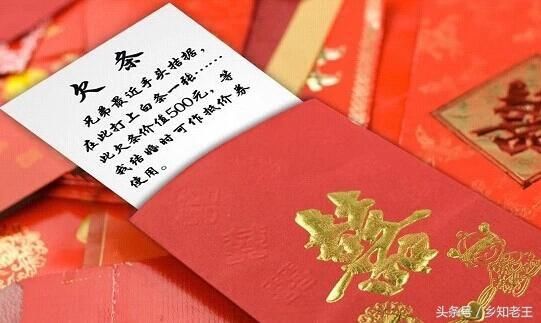 欠条
兄弟最近手头拮据，
在此打上白条一张……
此欠条价值500元，等
我结婚时可作抵价券
使用。
头条号 / 乡知老王